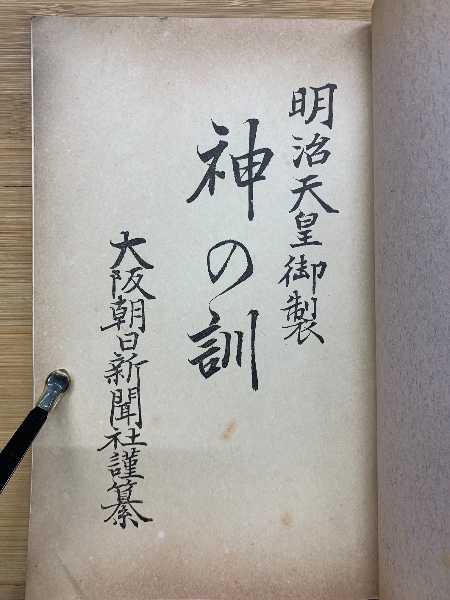 明治天皇御製
神の訓
大阪朝日新聞社謹纂